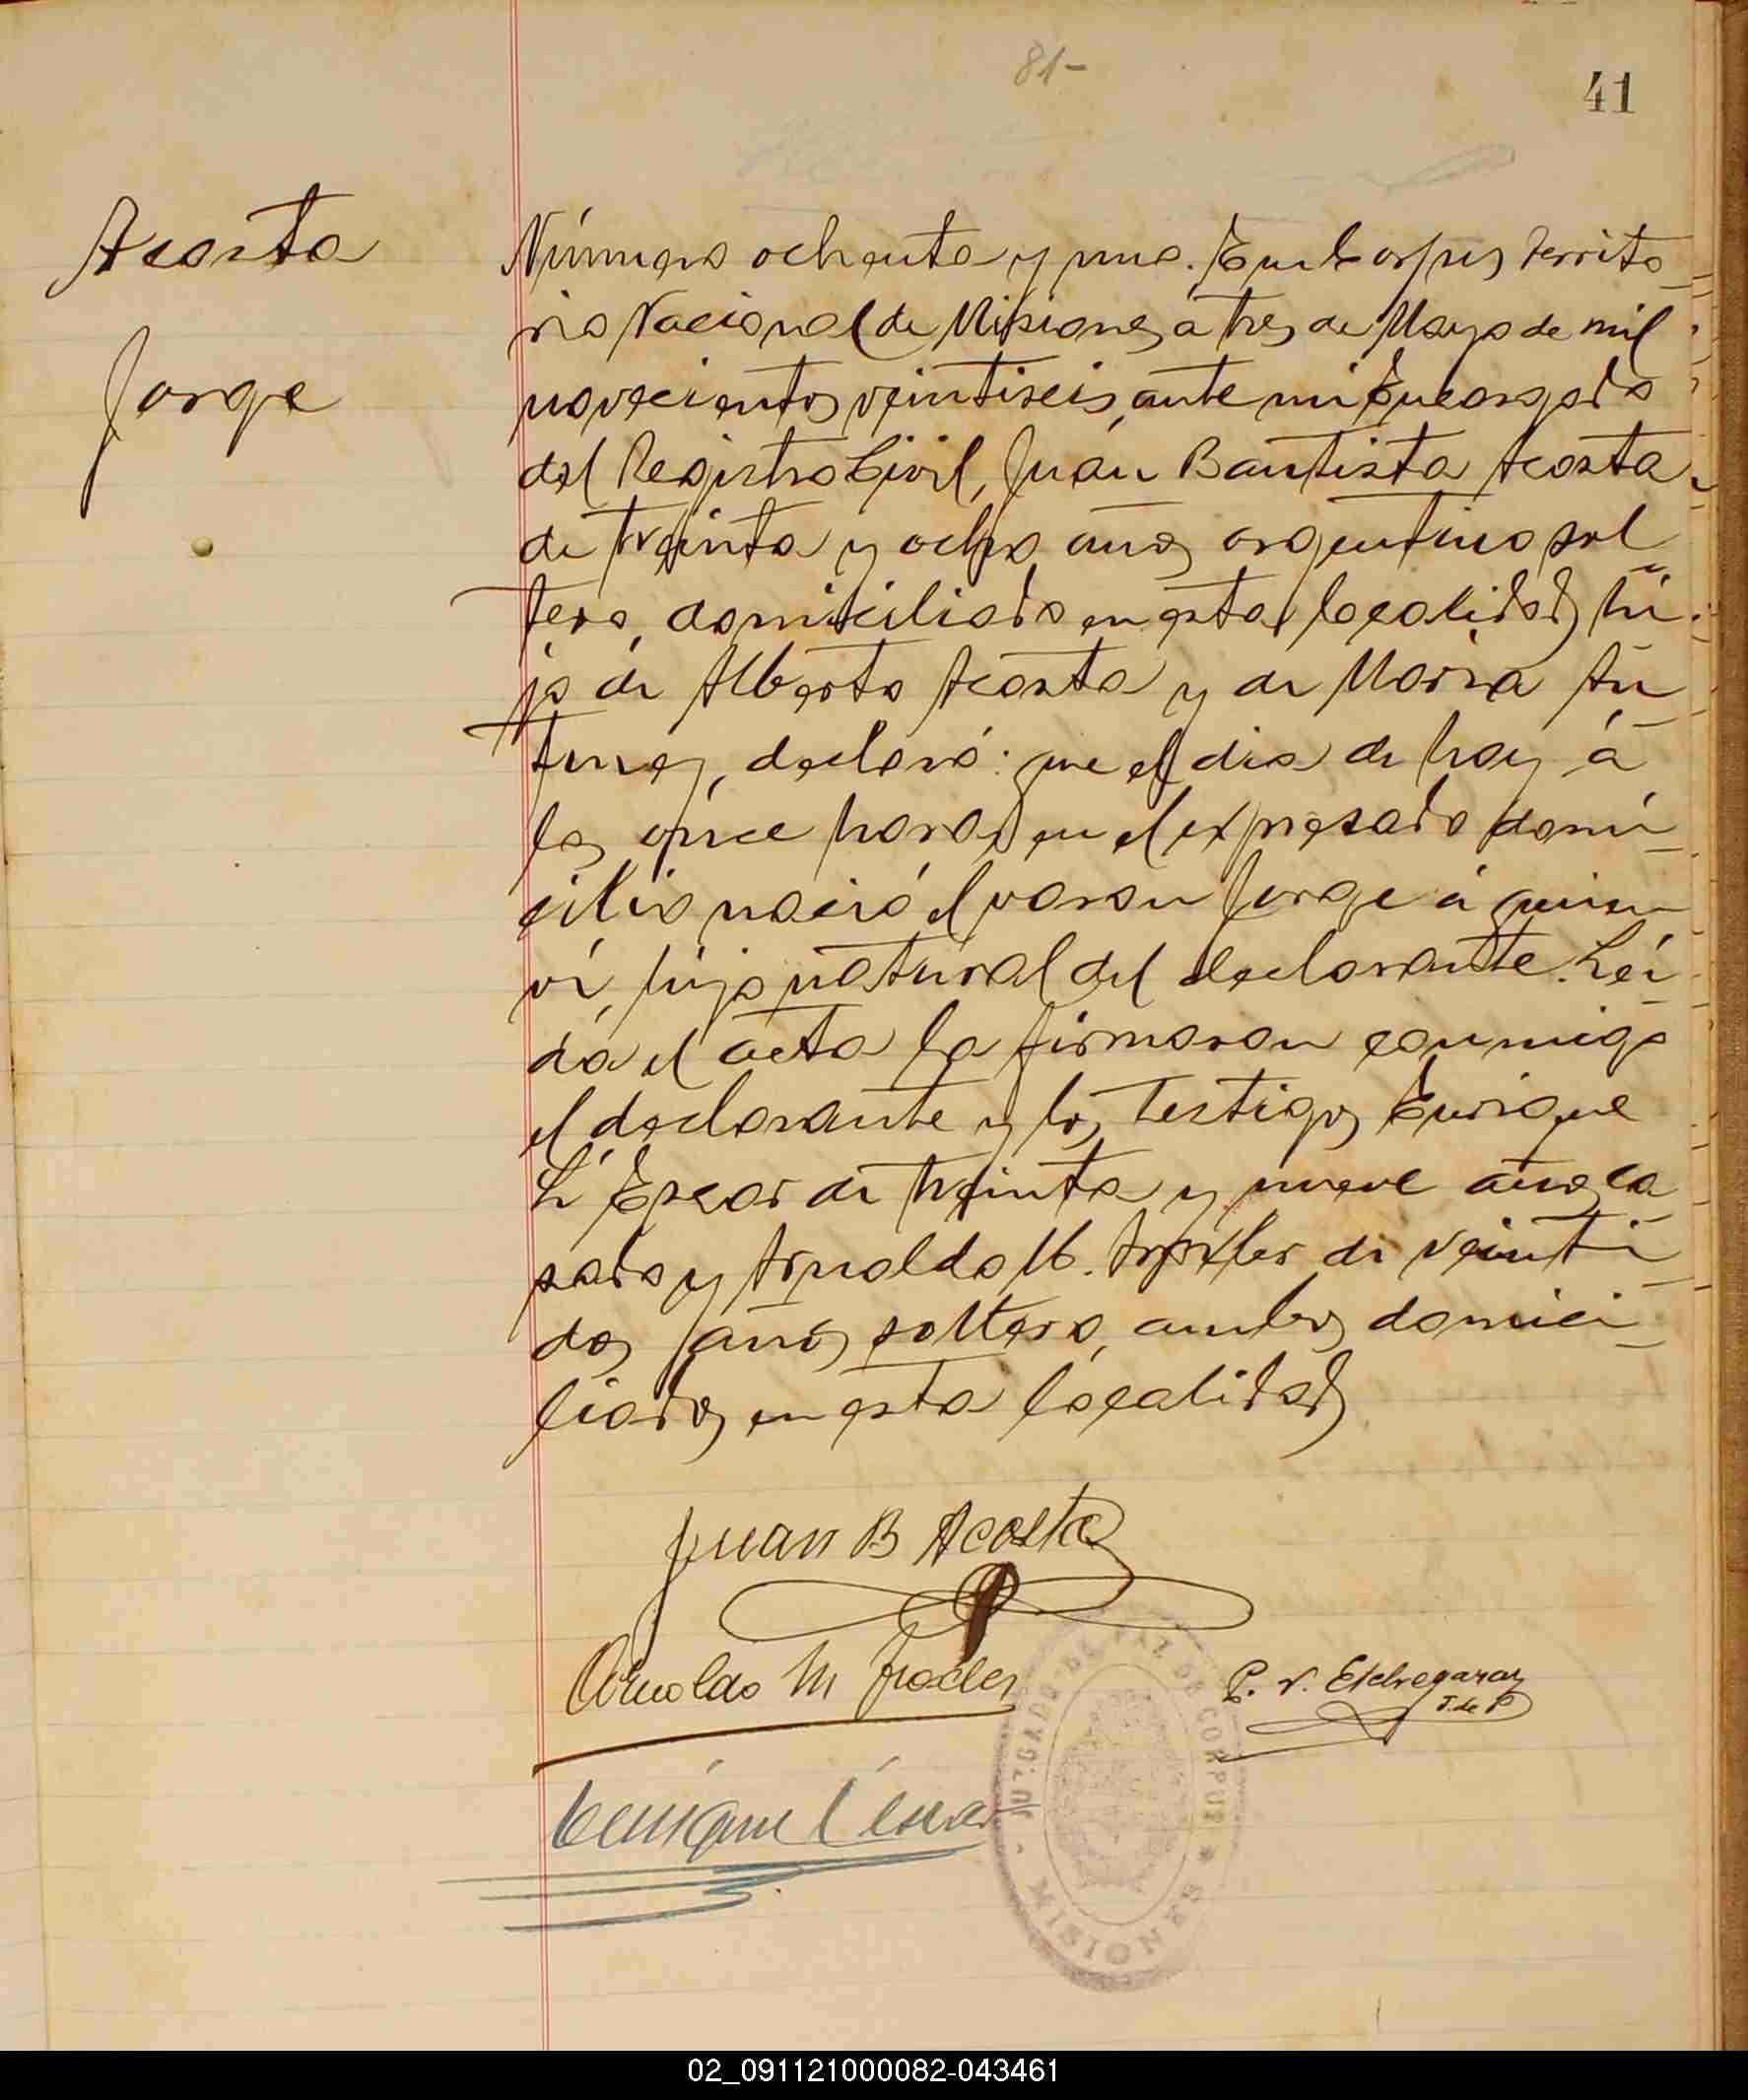 81-
41
Acosta
Jorge
Número ochenta y uno. En Corpus territo-
rio Nacional de Misiones, á tres de Mayo de mil
novecientos veintiseis, ante mi Encargado
del Registro Civil, Juan Bautista Acosta
de treinta y ocho años argentino sol-
tero, domiciliado en esta localidad hi-
jo de Alberto Acosta y de Maria An-
tunez, declaró: que el dia de hoy á
las once horas en el expresado domi-
cilio nació el varon Jorge á quien
ví, hijo natural del declarante. Lei-
da el acta la firmaron conmigo
el declarante y los testigos Enrique
L'Escar de treinta y nueve años ca-
sado y Arnaldo M. de veinti-
dos años soltero, ambos domici-
liados en esta localidad
Juan B Acosta
Arnoldo M
P. V. Etchegaray
J. de P
Enrique L'Escar
JUZGADO DE PAZ DE CORPUS * MISIONES -
02_091121000082-043461